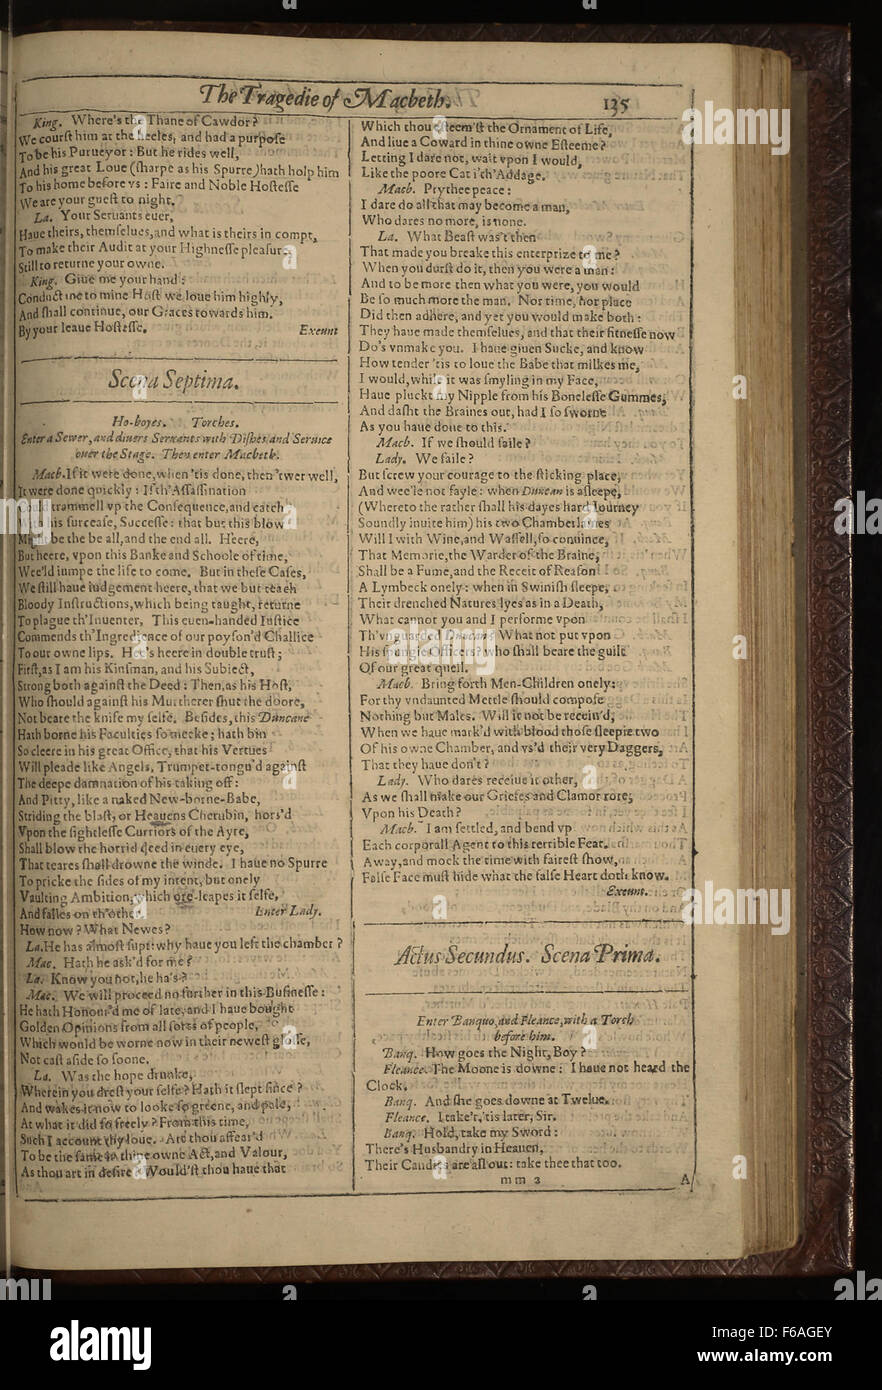 The Tragedie of Macbeth.
135
King. Where's the Thane of Cawdor?
We courſt him at the heeles, and had a purpoſe
To be his Purueyor: But he rides well,
And his great Loue (ſharpe as his Spurre) hath holp him
To his home before vs: Faire and Noble Hoſteſſe
We are your gueſt to night.
La. Your Seruants euer,
Haue theirs, themſelues, and what is theirs in compt,
To make their Audit at your Highneſſe pleaſure,
Still to returne your owne.
King. Giue me your hand:
Conduct me to mine Hoſt we loue him highly,
And ſhall continue, our Graces towards him.
By your leaue Hoſteſſe. Exeunt
Scena Septima.
Ho-boyes. Torches.
Enter a Sewer, and diuers Seruants with Diſhes and Seruice
ouer the Stage. Then enter Macbeth.
Macb. If it were done, when 'tis done, then 'twer well,
It were done quickly: If th'Aſſaſſination
Could trammell vp the Conſequence, and catch
With his ſurceaſe, Succeſſe: that but this blow
Might be the be all, and the end all. Heere,
But heere, vpon this Banke and Schoole of time,
Wee'ld iumpe the life to come. But in theſe Caſes,
We ſtill haue iudgement heere, that we but teach
Bloody Inſtructions, which being taught, returne
To plague th'Inuenter, This euen-handed Iuſtice
Commends th'Ingredience of our poyſon'd Challice
To our owne lips. Hee's heere in double truſt;
Firſt, as I am his Kinſman, and his Subiect,
Strong both againſt the Deed: Then, as his Hoſt,
Who ſhould againſt his Murtherer ſhut the doore,
Not beare the knife my ſelfe. Beſides, this Duncane
Hath borne his Faculties ſo meeke; hath bin
So cleere in his great Office, that his Vertues
Will pleade like Angels, Trumpet-tongu'd againſt
The deepe damnation of his taking off:
And Pitty, like a naked New-borne-Babe,
Striding the blaſt, or Heauens Cherubin, hors'd
Vpon the ſightleſſe Curriors of the Ayre,
Shall blow the horrid deed in euery eye,
That teares ſhall drowne the winde. I haue no Spurre
To pricke the ſides of my intent, but onely
Vaulting Ambition, which ore-leapes it ſelfe,
And falles on th'other. Enter Lady.
How now? What Newes?
La. He has almoſt ſupt: why haue you left the chamber?
Mac. Hath he ask'd for me?
La. Know you not, he ha's?
Mac. We will proceed no further in this Buſineſſe:
He hath Honour'd me of late, and I haue bought
Golden Opinions from all ſorts of people,
Which would be worne now in their neweſt gloſſe,
Not caſt aſide ſo ſoone.
La. Was the hope drunke,
Wherein you dreſt your ſelfe? Hath it ſlept ſince?
And wakes it now to looke ſo greene, and pale,
At what it did ſo freely? From this time,
Such I account thy loue. Art thou affear'd
To be the ſame in thine owne Act, and Valour,
As thou art in deſire? Would'ſt thou haue that
Which thou eſteem'ſt the Ornament of Life,
And liue a Coward in thine owne Eſteeme?
Letting I dare not, wait vpon I would,
Like the poore Cat i'th'Addage.
Macb. Prythee peace:
I dare do all that may become a man,
Who dares no more, is none.
La. What Beaſt was't then
That made you breake this enterprize to me?
When you durſt do it, then you were a man:
And to be more then what you were, you would
Be ſo much more the man. Nor time, nor place
Did then adhere, and yet you would make both:
They haue made themſelues, and that their fitneſſe now
Do's vnmake you. I haue giuen Sucke, and know
How tender 'tis to loue the Babe that milkes me,
I would, while it was ſmyling in my Face,
Haue pluckt my Nipple from his Boneleſſe Gummes,
And daſht the Braines out, had I ſo ſworne
As you haue done to this.
Macb. If we ſhould faile?
Lady. We faile?
But ſcrew your courage to the ſticking place,
And wee'le not fayle: when Duncan is aſleepe,
(Whereto the rather ſhall his dayes hard Iourney
Soundly inuite him) his two Chamberlaines
Will I with Wine, and Waſſell, ſo conuince,
That Memorie, the Warder of the Braine,
Shall be a Fume, and the Receit of Reaſon
A Lymbeck onely: when in Swiniſh ſleepe,
Their drenched Natures lyes as in a Death,
What cannot you and I performe vpon
Th'vnguarded Duncan? What not put vpon
His ſpungie Officers? who ſhall beare the guilt
Of our great quell.
Macb. Bring forth Men-Children onely:
For thy vndaunted Mettle ſhould compoſe
Nothing but Males. Will it not be receiu'd,
When we haue mark'd with blood thoſe ſleepie two
Of his owne Chamber, and vs'd their very Daggers,
That they haue don't?
Lady. Who dares receiue it other,
As we ſhall make our Griefes and Clamor rore,
Vpon his Death?
Macb. I am ſettled, and bend vp
Each corporall Agent to this terrible Feat.
Away, and mock the time with faireſt ſhow,
Falſe Face muſt hide what the falſe Heart doth know.
Exeunt.
Actus Secundus. Scena Prima.
Enter Banquo, and Fleance, with a Torch
before him.
Banq. How goes the Night, Boy?
Fleance. The Moone is downe: I haue not heard the
Clock.
Banq. And ſhe goes downe at Twelue.
Fleance. I take't, 'tis later, Sir.
Banq. Hold, take my Sword:
There's Husbandry in Heauen,
Their Candles are all out: take thee that too.
m m 2 A
alamy
alamy
Image ID: F6AGEY
www.alamy.com